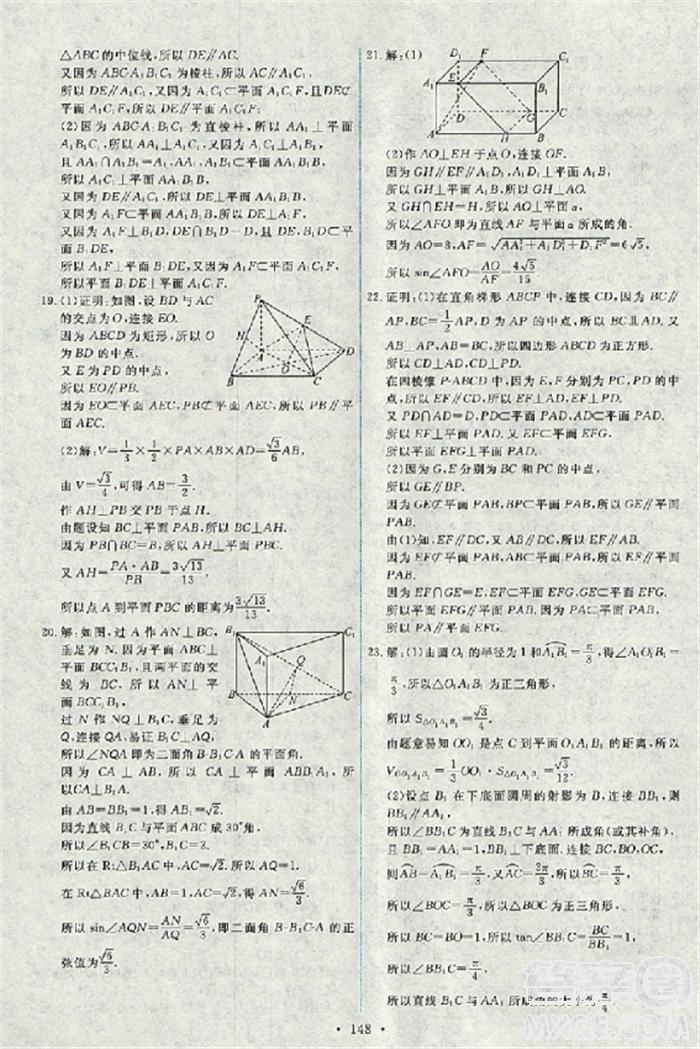 △ABC的中位线,所以DE∥AC.
又因为ABC-A₁B₁C₁为棱柱,所以AC∥A₁C₁.
所以DE∥A₁C₁,又因为A₁C₁⊂平面A₁C₁F,且DE⊄
平面A₁C₁F,所以DE∥平面A₁C₁F;
(2)因为ABC-A₁B₁C₁为直棱柱,所以AA₁⊥平面
A₁B₁C₁,所以AA₁⊥A₁C₁,又因为A₁C₁⊥A₁B₁,
且AA₁∩A₁B₁=A₁,AA₁,A₁B₁⊂平面AA₁B₁B,
所以A₁C₁⊥平面AA₁B₁B,
又因为DE∥A₁C₁,所以DE⊥平面AA₁B₁B,
又因为A₁F⊂平面AA₁B₁B,所以DE⊥A₁F,
又因为A₁F⊥B₁D,DE∩B₁D=D,且DE,B₁D⊂平面
B₁DE,
所以A₁F⊥平面B₁DE,又因为A₁F⊂平面A₁C₁F,
所以平面B₁DE⊥平面A₁C₁F.
19.(1)证明:如图,设BD与AC
的交点为O,连接EO.
因为ABCD为矩形,所以O
为BD的中点.
又E为PD的中点,
所以EO∥PB.
P
E
N
A
D
O
B
C
因为EO⊂平面AEC,PB⊄平面AEC,所以PB∥平
面AEC.
(2)解:V=1/3×1/2×PA×AB×AD=√3/6 AB,
由V=√3/4,可得AB=3/2.
作AH⊥PB交PB于点H.
由题设知BC⊥平面PAB,所以BC⊥AH.
因为PB∩BC=B,所以AH⊥平面PBC.
又AH=PA·AB/PB=3√13/13.
所以点A到平面PBC的距离为3√13/13.
20.解:如图,过A作AN⊥BC,
垂足为N,因为平面ABC⊥
平面BCC₁B₁,且两平面的交
线为BC,所以AN⊥平
面BCC₁B₁.
过N作NQ⊥B₁C,垂足为
B₁
C₁
A₁
Q
B
C
N
A
Q,连接QA,易证B₁C⊥QA,
所以∠NQA即为二面角B-B₁C-A的平面角.
因为CA⊥AB,所以CA⊥平面ABB₁A₁,所以
CA⊥B₁A.
由AB=BB₁=1,得AB₁=√2.
因为直线B₁C与平面ABC成30°角,
所以∠B₁CB=30°,B₁C=2.
所以在Rt△B₁AC中,AC=√2,得AQ=1.
在Rt△BAC中,AC=√2,得AN=√6/3.
所以sin∠AQN=AN/AQ=√6/3,即二面角B-B₁C-A的正
弦值为√6/3.
21.解:(1)
D₁
F
C₁
A₁
E
B₁
D
G
C
A
H
B
(2)作AO⊥EH于点O,连接OF.
因为GH∥EF∥A₁D₁,
所以GH⊥平面A₁B₁BA,所以GH⊥AO.
又GH∩EH=H,所以AO⊥平面α,
所以∠AFO即为直线AF与平面α所成的角.
因为AO=8,AF=√(AA₁²+A₁D₁²+D₁F²)=6√5,
所以sin∠AFO=AO/AF=4√5/15.
22.证明:(1)在直角梯形ABCP中,连接CD,因为BC∥
AP,BC=1/2AP,D为AP的中点,所以BC∥AD,又
AB⊥AP,AB=BC,所以四边形ABCD为正方形.
所以CD⊥AP,CD⊥AD,CD⊥PD.
在四棱锥P-ABCD中,因为E,F分别为PC,PD的中
点,所以EF∥CD,所以EF⊥AD,EF⊥PD.
又PD∩AD=D,PD⊂平面PAD,AD⊂平面PAD,
所以EF⊥平面PAD.又EF⊂平面EFG,
所以平面EFG⊥平面PAD.
(2)因为G,E分别为BC和PC的中点,
所以GE∥BP.
因为GE⊄平面PAB,BP⊂平面PAB,所以GE∥平面
PAB.
由(1)知,EF∥DC,又AB∥DC,所以EF∥AB.
因为EF⊄平面PAB,AB⊂平面PAB,所以EF∥平面
PAB.
因为EF∩GE=E,EF⊂平面EFG,GE⊂平面EFG,
所以平面EFG∥平面PAB.因为PA⊂平面PAB,
所以PA∥平面EFG.
23.解:(1)由圆O₁的半径为1和A₁B₁=π/3,得∠A₁O₁B₁=
π/3,所以△O₁A₁B₁为正三角形,
所以S△O₁A₁B₁=√3/4.
由题意易知OO₁是点O到平面O₁A₁B₁的距离,所以
V O-O₁A₁B₁=1/3 OO₁·S△O₁A₁B₁=√3/12.
(2)设点B₁在下底面圆周的射影为B,连接BB₁,则
BB₁∥AA₁,
所以∠BB₁C为直线B₁C与AA₁所成角(或其补角),
且BB₁=AA₁=1,BB₁⊥下底面,所以BB₁⊥BC,
则AB=A₁B₁=π/3,又AC=2π/3,所以BC=π/3,
所以∠BOC=π/3,所以△BOC为正三角形,
所以BC=BO=1,所以tan∠BB₁C=BC/BB₁=1,
所以直线B₁C与AA₁所成角的大小为π/4.
148